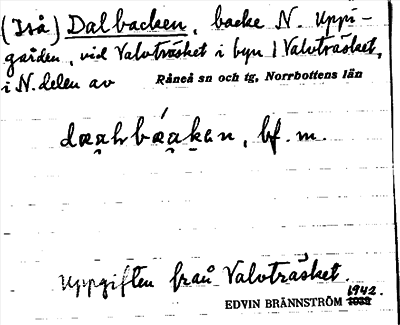 (Två) Dalbacken, backe N. Uppi-
gården, vid Valvträsket i byn 1 Valvträsket,
i N. delen av Råneå sn och tg, Norrbottens län
bf. m.
Uppgiften från Valvträsket.
1942.
EDVIN BRÄNNSTRÖM 1933